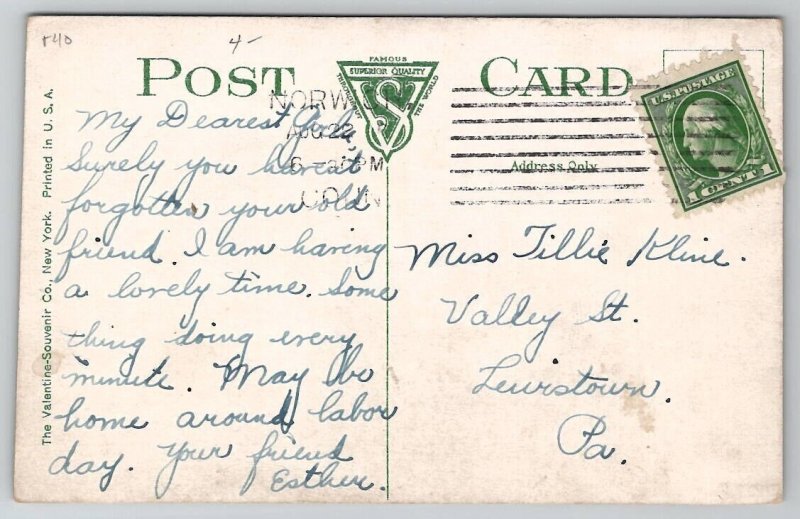 r40
4-
POST CARD
FAMOUS
SUPERIOR QUALITY
THROUGHOUT THE WORLD
NORWICH
AUG 22
6- PM
CONN
U.S. POSTAGE
1 CENT 1
Address Only
The Valentine-Souvenir Co., New York. Printed in U. S. A.
My Dearest
Surely you haven't
forgotten your old
friend. I am having
a lovely time. Some
thing doing every
minute. May be
home around labor
day. Your friend
Esther.
Miss Tillie Kline.
Valley St.
Lewistown.
Pa.